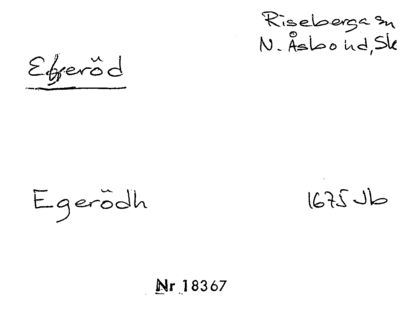 Riseberga sn
N. Åsbo hd, Sk
Egeröd
Egerödh 1675 Jb
Nr 18367